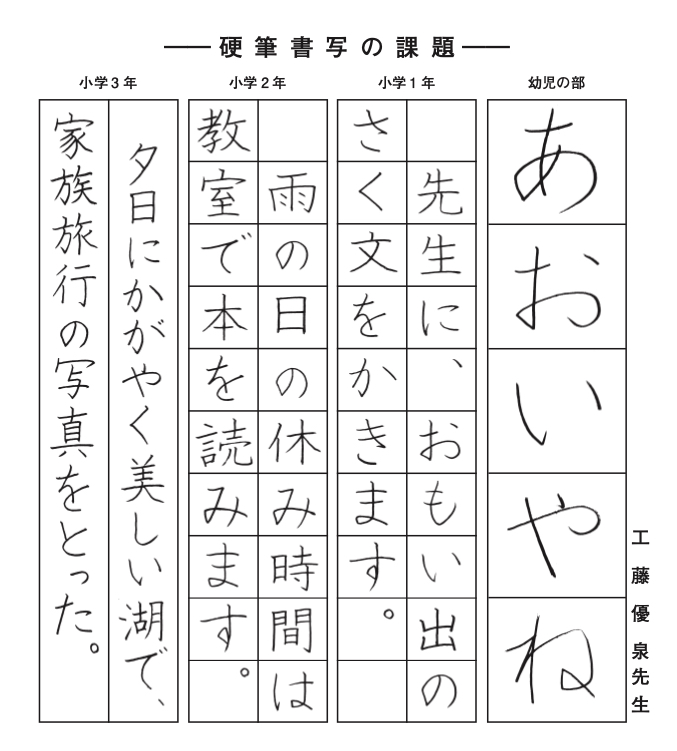 硬筆書写の課題
幼児の部
あおいやね
工藤優泉先生
小学1年
先生に、おもい出の
さく文をかきます。
小学2年
雨の日の休み時間は
教室で本を読みます。
小学3年
夕日にかがやく美しい湖で、
家族旅行の写真をとった。